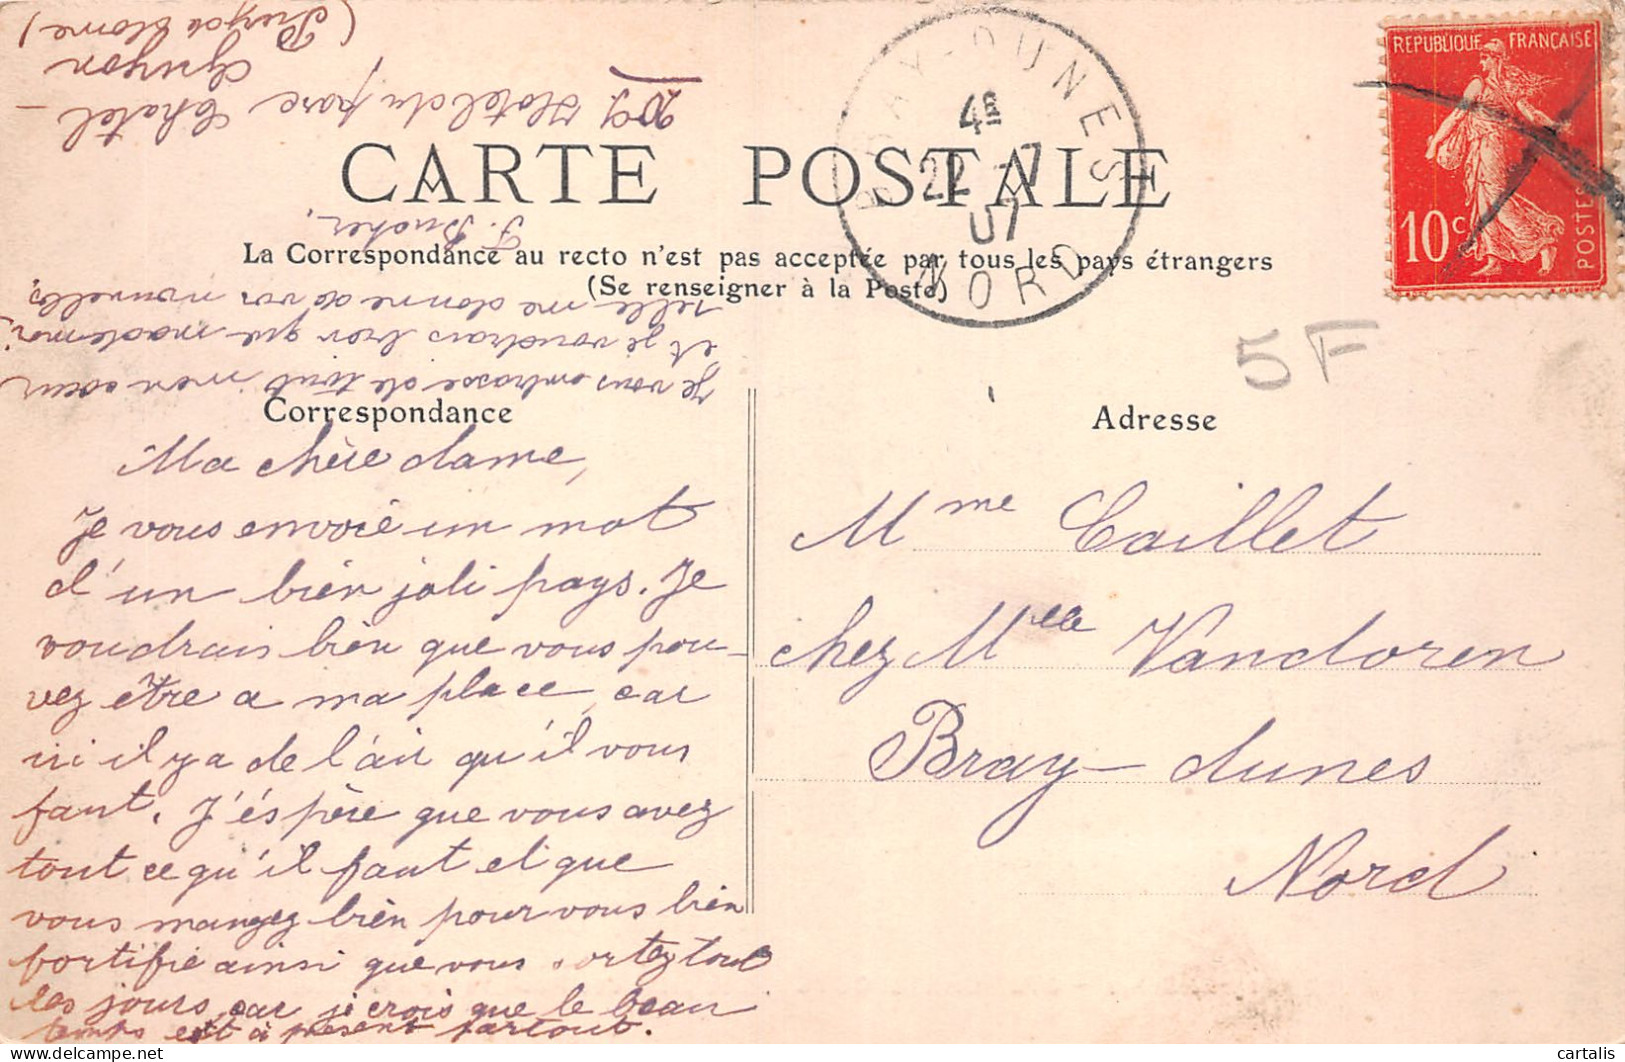 CARTE POSTALE
La Correspondance au recto n'est pas acceptée par tous les pays étrangers
(Se renseigner à la Poste)
Correspondance
Ma chère dame,
Je vous envoie un mot
d'un bien joli pays. Je
voudrais bien que vous pou-
vez être a ma place, car
ici il y a de l'air qu'il vous
faut. J'éspère que vous avez
tout ce qu'il faut et que
vous mangez bien pour vous bien
fortifie ainsi que vous sortez tout
les jours, car je crois que le beau
temps est à présent partout.
Je vous embrasse de tout mon cœur
et je voudrais bien que mademoi-
selle me donne de vos nouvelles.
F. Bucher.
Hotel du parc Chatel-
Guyon
(Puy de Dome)
BRAY-DUNES
4E
22 -7
07
NORD
REPUBLIQUE FRANÇAISE
10c
POSTES
5F
Adresse
Mme Caillet
chez Mlle Vandoren
Bray-dunes
Nord
cartalis